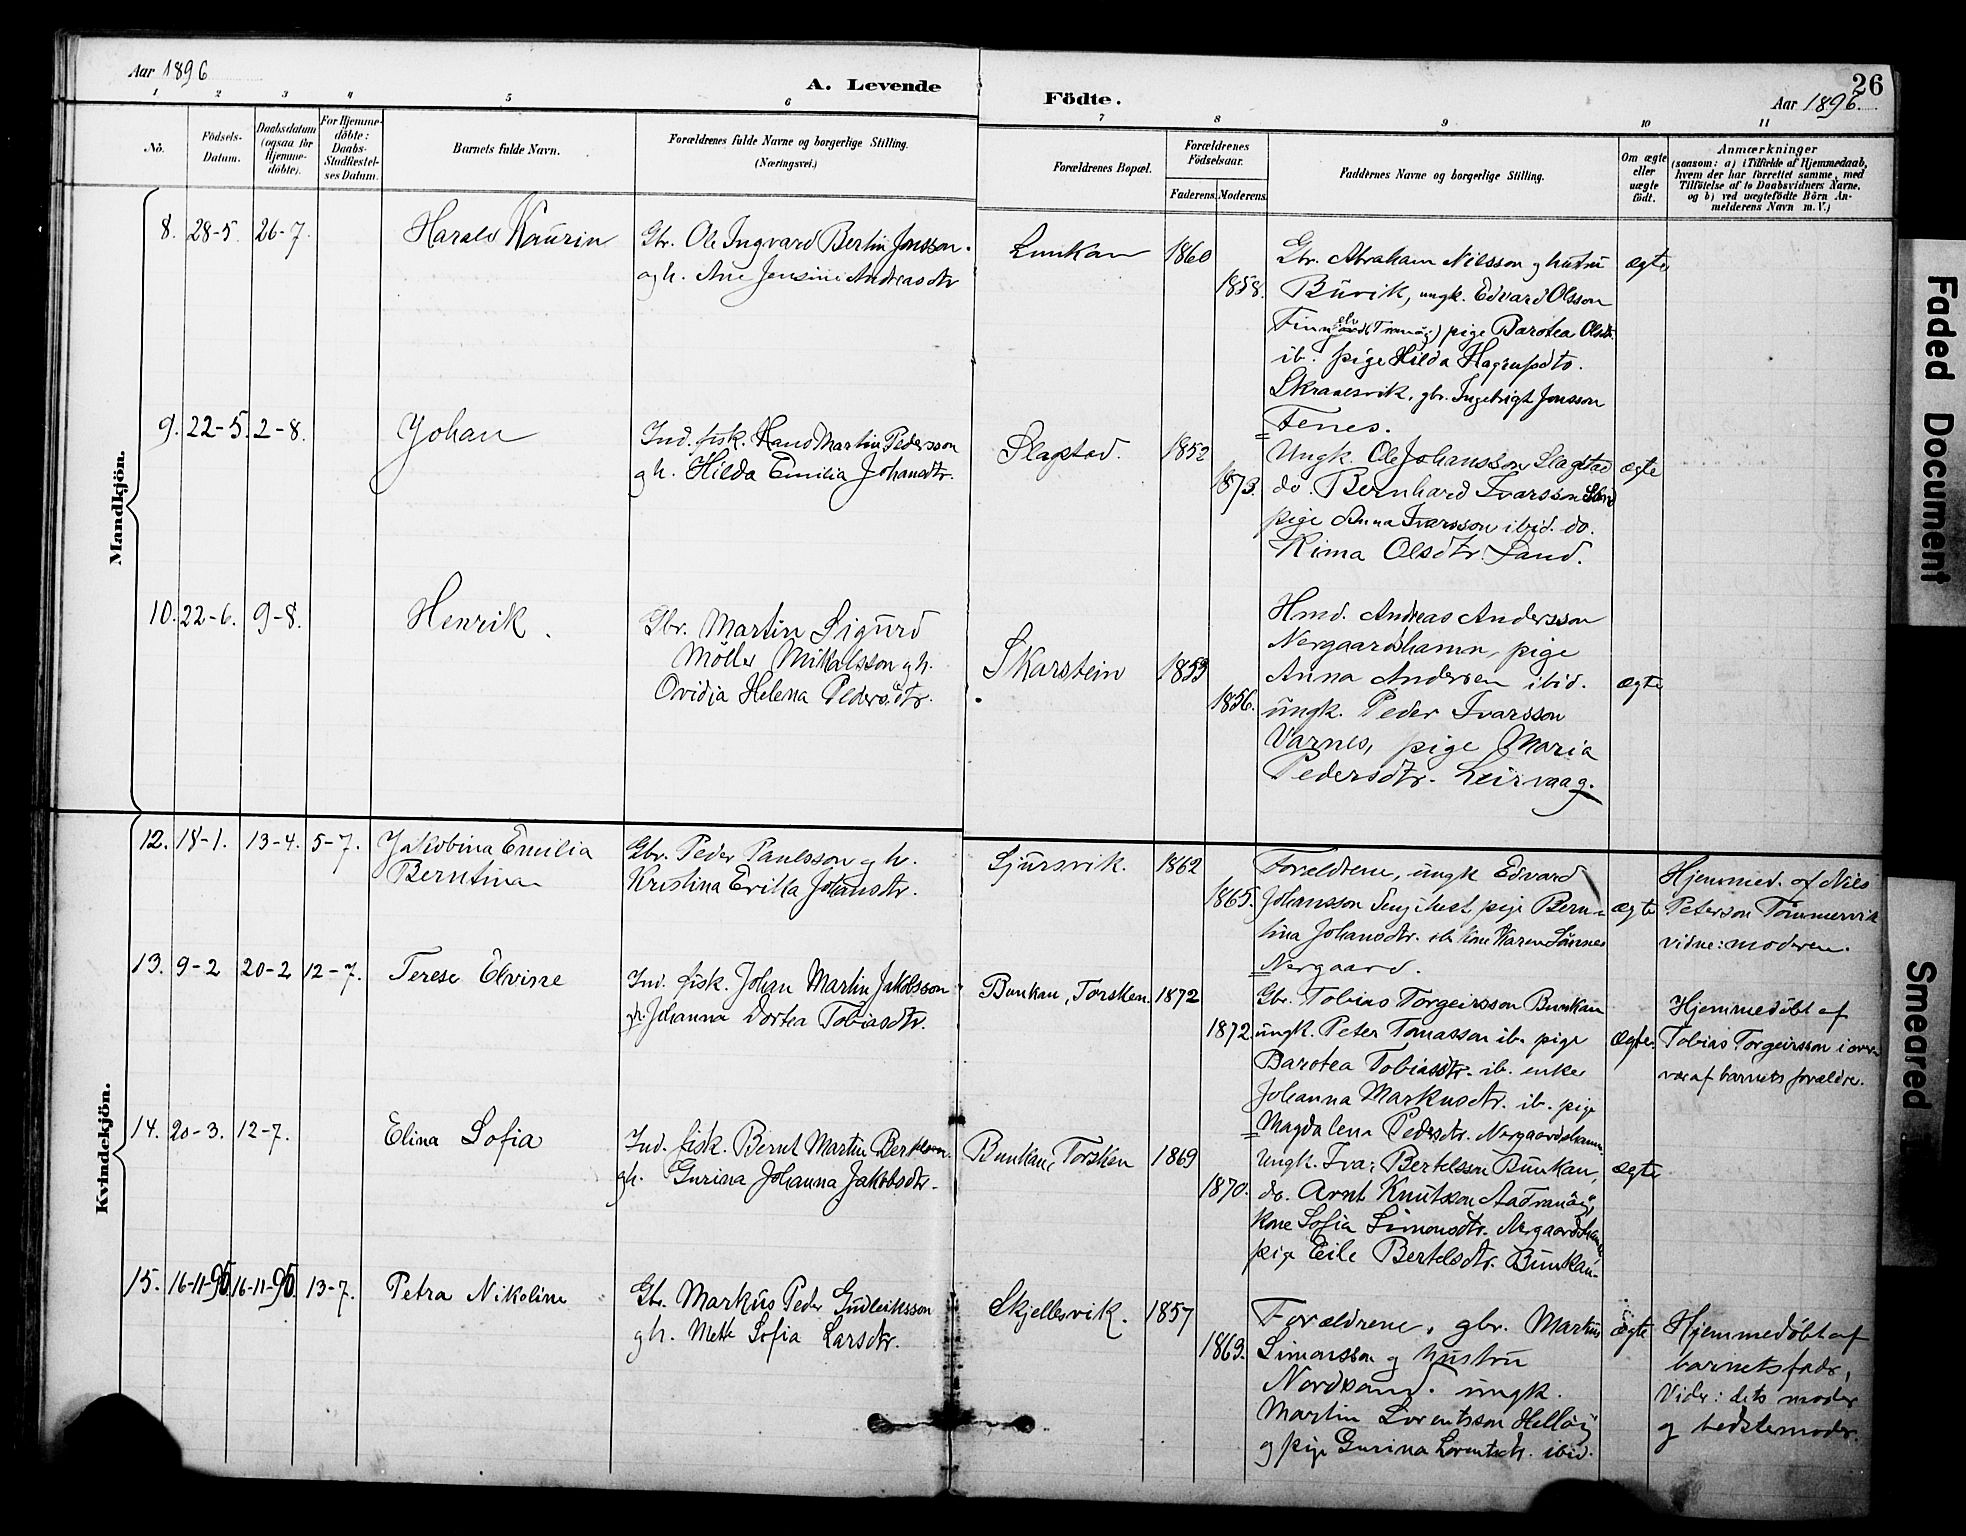 Aar 1896
A. Levende
Födte.
26
Aar 1896.
1 2 3 4 5 6 7 8 9 10 11
No.
Födsels-
Datum.
Daabsdatum
(ogsaa for
Hjemme-
döbte).
For Hjemme-
döbte:
Daabs-
Stadfæstel-
ses Datum.
Barnets fulde Navn.
Forældrenes fulde Navne og borgerlige Stilling.
(Næringsvei.)
Forældrenes Bopæl.
Forældrenes
Födselsaar.
Faderens. Moderens.
Faddernes Navne og borgerlige Stilling.
Om ægte
eller
uægte
födt.
Anmærkninger
(saasom: a) i Tilfælde af Hjemmedaab,
hvem der har forrettet samme, med
Tilföielse af to Daabsvidners Navne,
og b) ved uægtefödte Börn An-
melderens Navn m. V.)
Mandkjön.
8. 28-5. 26-7.
Harald Kaurin
Gbr. Ole Ingvard Bertin Jonsson.
og h. Ane Jensine Andreasdtr
Lunkan
1860
1858.
Gbr. Abraham Nilsson g hustru
Buvik, ungk. Edvard Olsson
pige Barotea Olsdtr.
ib. pige Hilda
Skraalsvik, gbr. Ingebrigt Jonsson
Fenes.
ægte
9. 22-5. 2-8.
Johan
Ind. fisk. Hans Martin Pedersson
g h. Hilda Emilia Johansdtr.
Slagstad.
1852
1873.
Ungk. Ole Johansson Slagstad
do. Bernhard Ivarsson
pige Anna Ivarsson ibid. do.
Rima Olsdtr. Sand.
ægte
10. 22-6. 9-8.
Henrik.
Gbr. Martin Sigurd
Möller Mikalsson g h.
Ovidia Helena Pedersdtr.
Skarstein
1853
1856.
Hmd. Andreas Andersson
Nergaardshamn, pige
Anna Andersen ibid.
ungk. Peder Ivarsson
Varnes, pige Maria
Pedersdtr. Leirvaag.
ægte
Kvindekjön.
12. 18-1. 13-4. 5-7.
Jakobina Emilia
Berntina
Gbr. Peder Paulsson g h.
Kristina Erikka Johansdtr.
Sjursvik.
1862
1865.
Foreldrene, ungk Edvard
Johansson pige Bern-
tina Johansdtr. ib kone Karen Sönnes
Nergaard.
ægte
Hjemmed. af Nils
Peterson Tömmervik
vidne: moderen.
13. 9-2 20-2 12-7.
Terese Elvine
Ind. fisk. Johan Martin Jakobsson
gh. Johanna Dortea Tobiasdtr.
Bunkan, Torsken.
1872
1872.
Gbr. Tobias Torgeirsson Bunkan
ungk. Peter Tomasson ib. pige
Barotea Tobiasdtr. ib. enke
Johanna Markusdtr. ib. pige
Magdalena Pedersdtr. Nergaardshamn.
ægte.
Hjemmedöbt af
Tobias Torgeirsson i over-
vær af barnets forældre.
14. 20-3. 12-7.
Elina Sofia
Ind. fisk. Bernt Martin Bertelsen
gh. Gurina Johanna Jakobsdtr.
Bunkan, Torsken
1869
1870.
Ungk. Ivar Bertelsson Bunkan,
do. Arnt Knutson
kone Sofia Simonsdtr. Nergaardshamn,
pige Eile Bertelsdtr. Bunkan.
ægte
15. 16-11-95. 16-11-95. 13-7.
Petra Nikoline
Gbr. Markus Peder Gudleiksson
g h. Mette Sofia Larsdtr.
Skjellesvik.
1857
1863.
Forældrene, gbr. Markus
Simonsson g hustru
Nordsand. ungk.
Martin Lorentsson Hellöy
og pige Gurina Lorentsdtr. ibid.
ægte
Hjemmedöbt af
barnets fader,
Vidr: dets moder
og bedstemoder.
Faded Document
Smeared